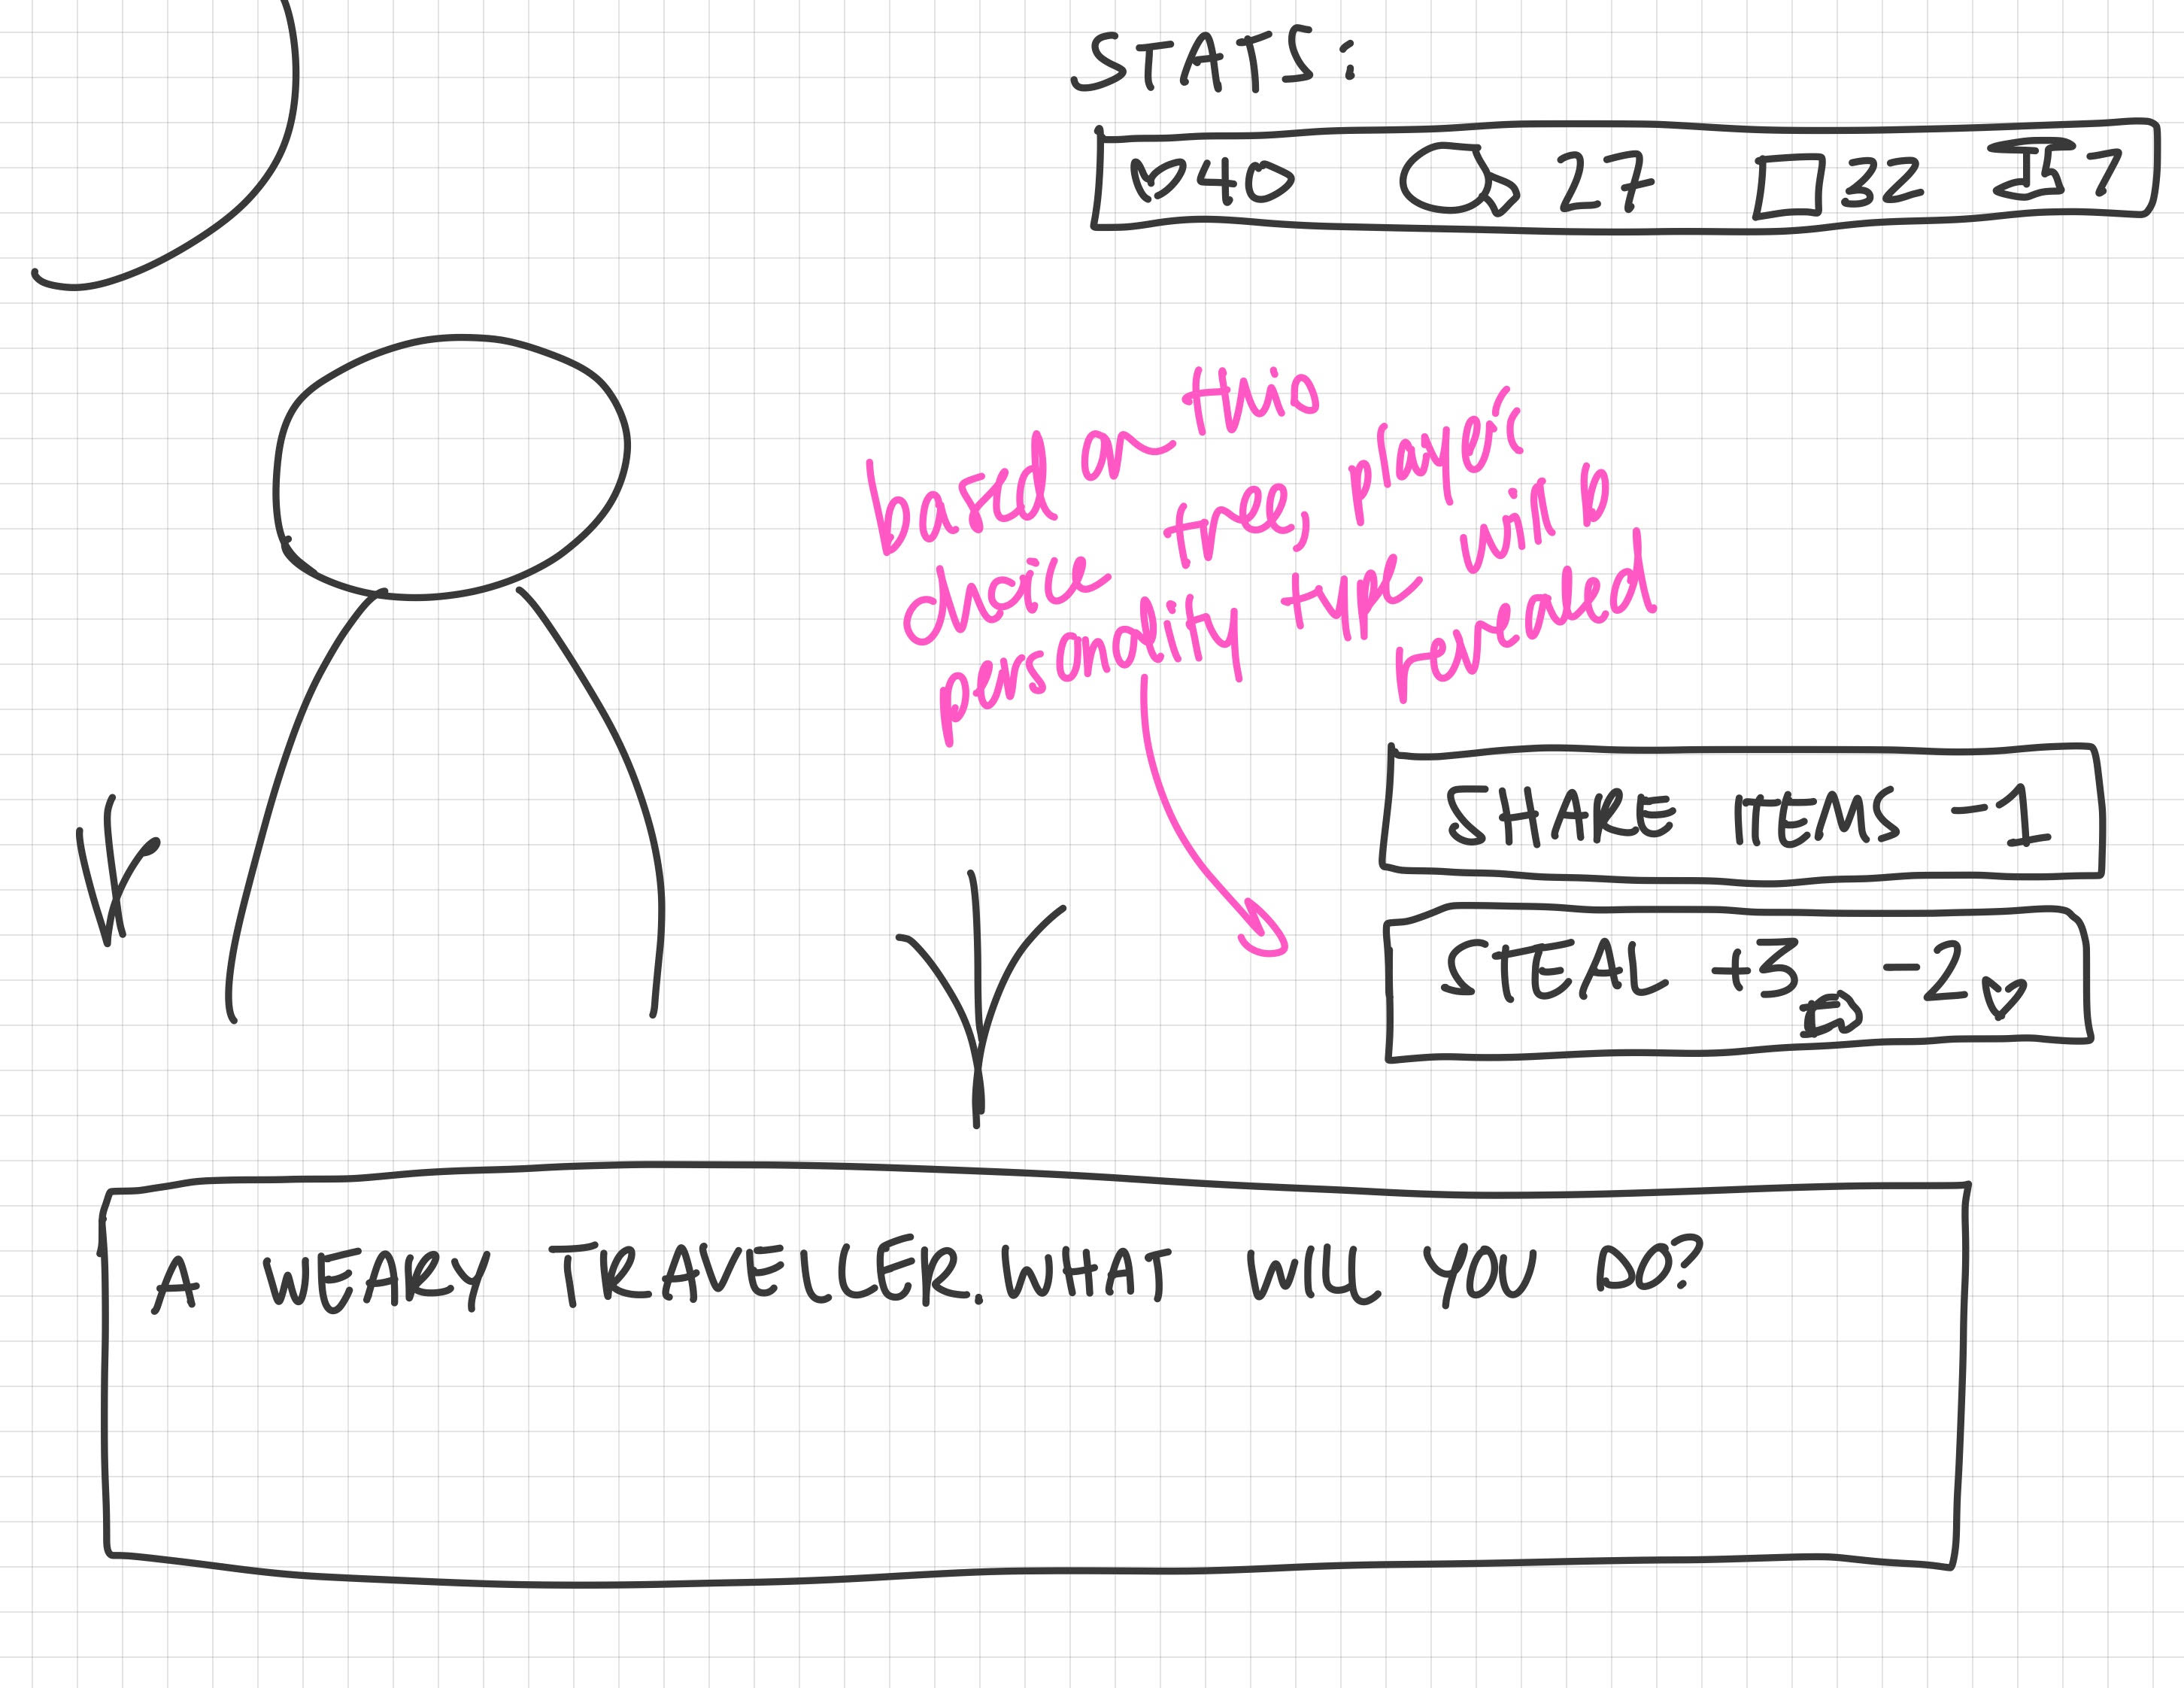 STATS:
40 27 32 7
based on this
choice type, player's
personality type will be
revealed
SHARE ITEMS -1
STEAL +3 -2
A WEARY TRAVELLER. WHAT WILL YOU DO?